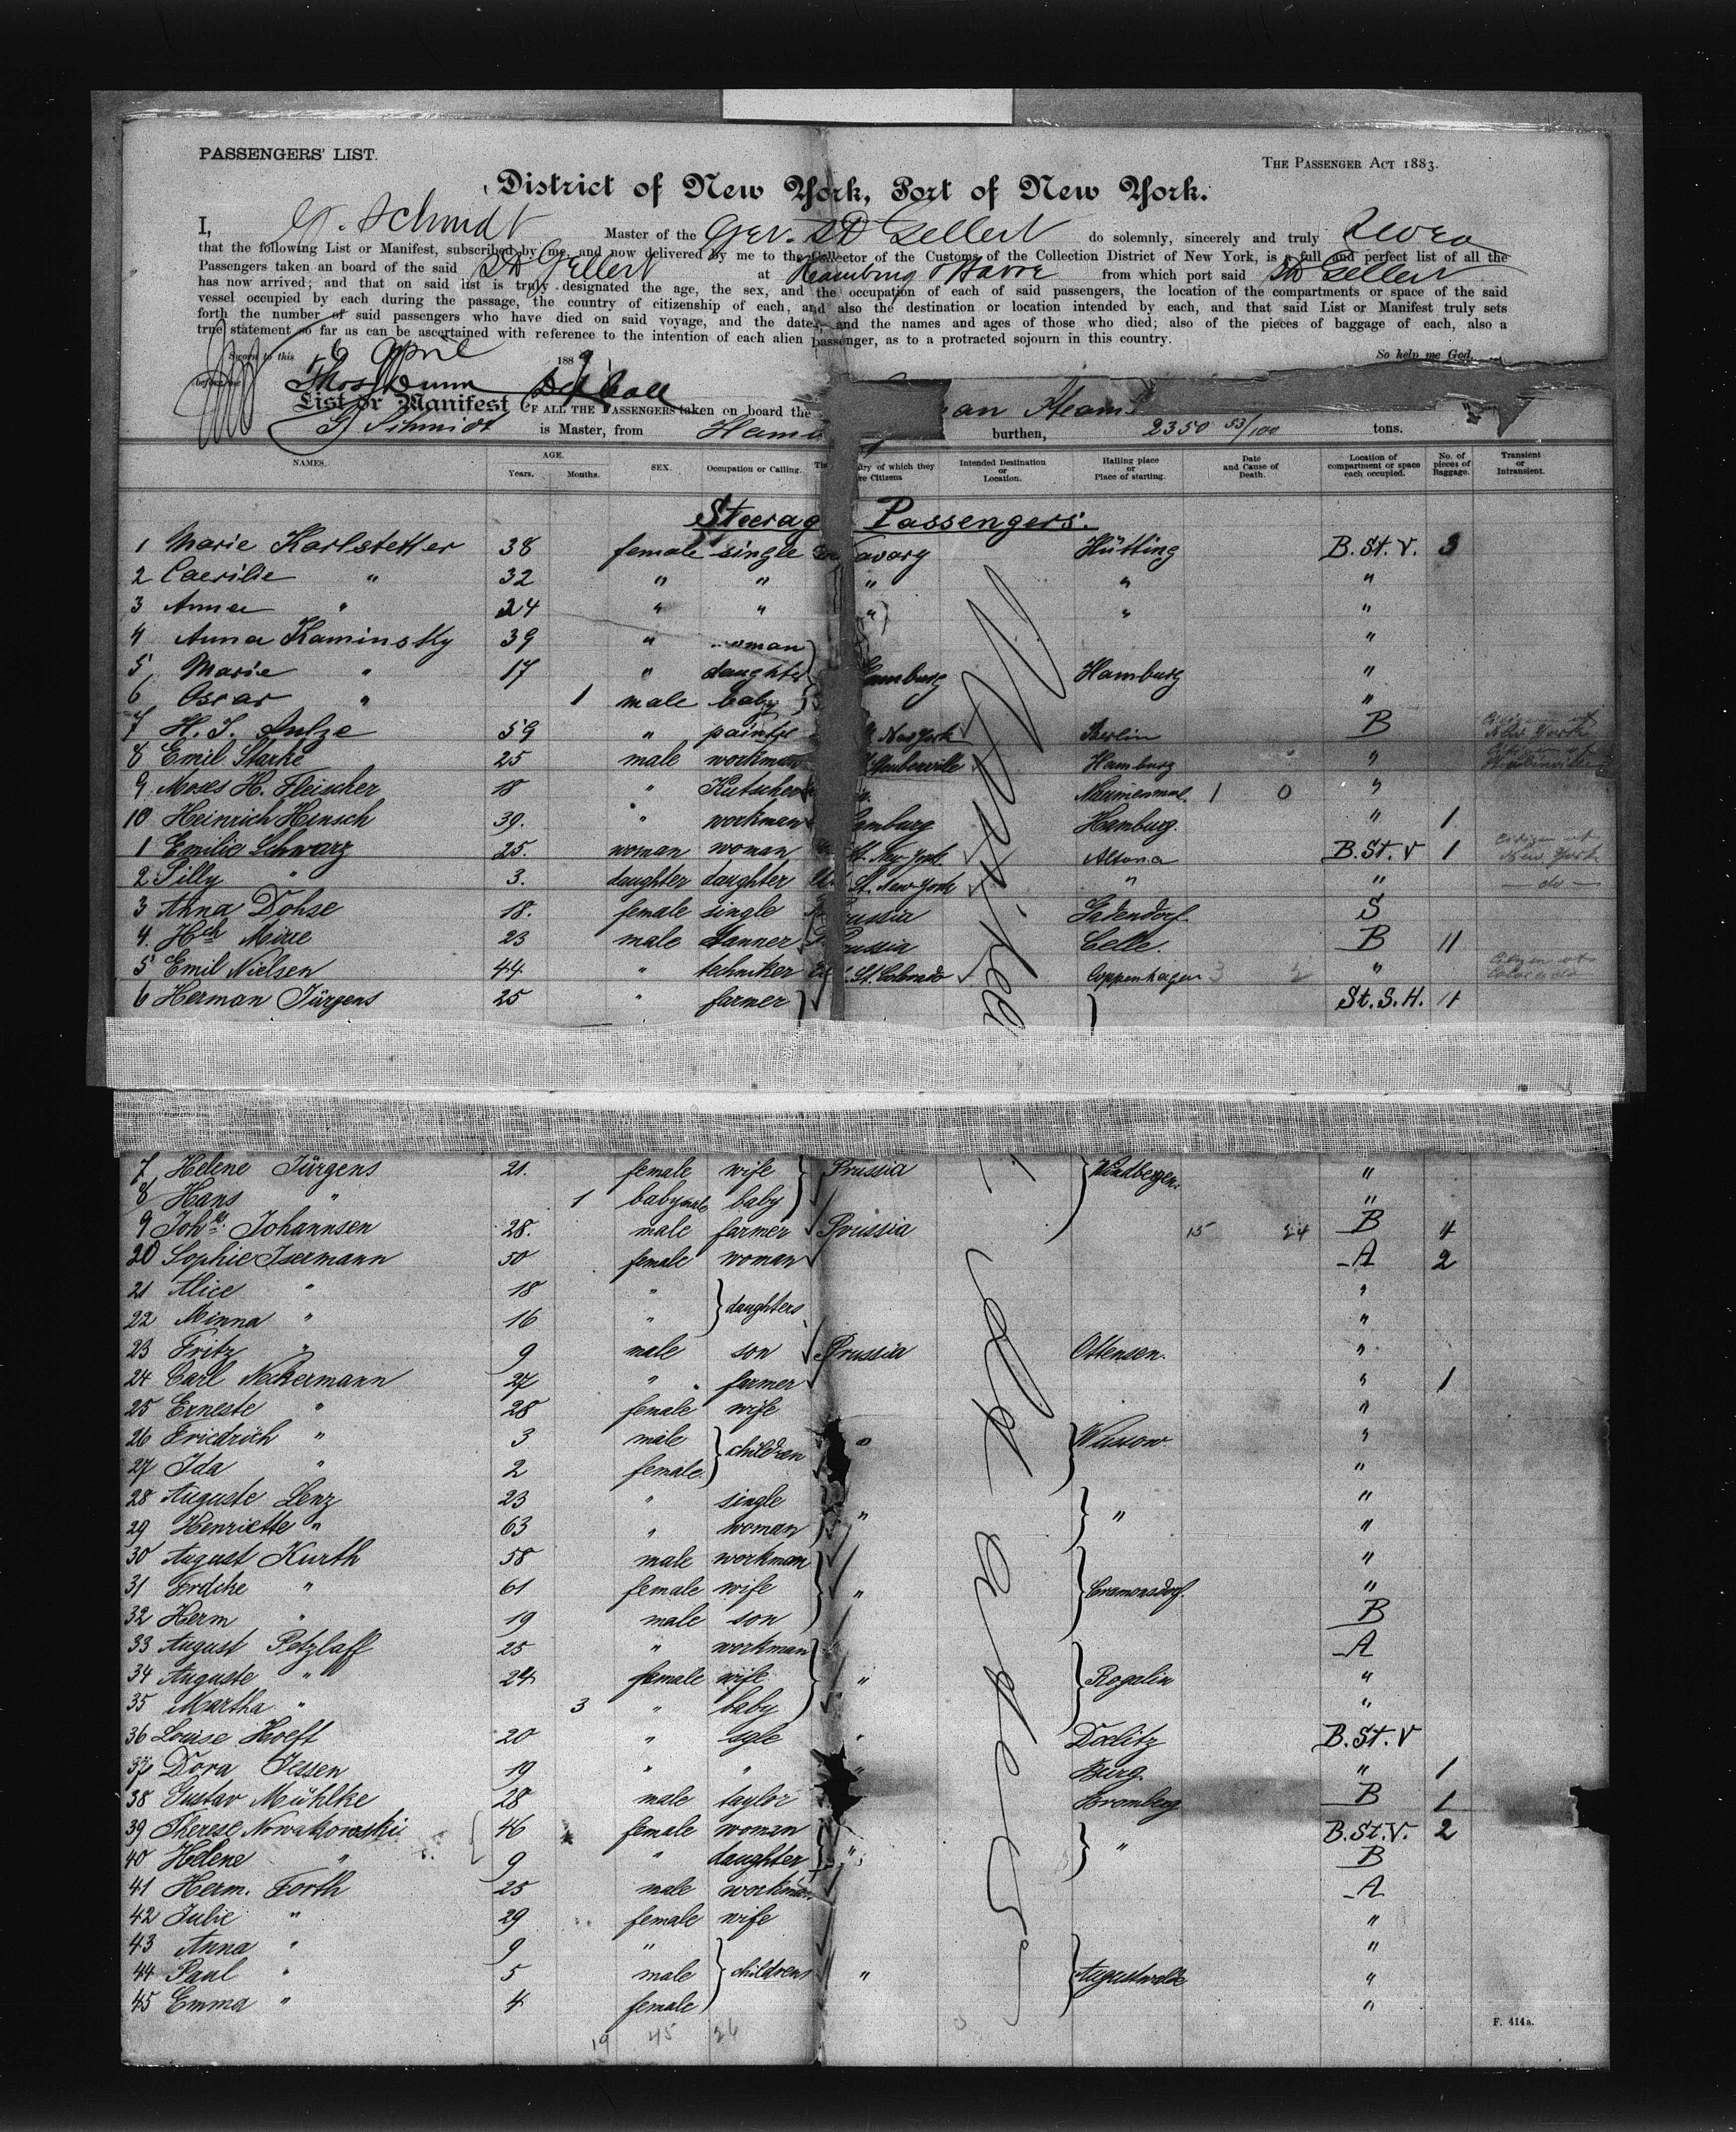 PASSENGERS' LIST.
THE PASSENGER ACT 1883.
District of New York, Port of New York.
I, G. Schmidt Master of the Ger. SD Gellert do solemnly, sincerely and truly swear
that the following List or Manifest, subscribed by me, and now delivered by me to the Collector of the Customs of the Collection District of New York, is a full and perfect list of all the
Passengers taken an board of the said SD Gellert at Hamburg & Havre from which port said SD Gellert
has now arrived; and that on said list is truly designated the age, the sex, and the occupation of each of said passengers, the location of the compartments or space of the said
vessel occupied by each during the passage, the country of citizenship of each, and also the destination or location intended by each, and that said List or Manifest truly sets
forth the number of said passengers who have died on said voyage, and the dates, and the names and ages of those who died; also of the pieces of baggage of each, also a
true statement so far as can be ascertained with reference to the intention of each alien passenger, as to a protracted sojourn in this country.
Sworn to this 6 April 1889
So help me God.
before me Thos Dunn
List or Manifest OF ALL THE PASSENGERS taken on board the an Steam
G Schmidt is Master, from Ham burthen, 2350 53/100 tons.
NAMES. AGE. Years. Months. SEX. Occupation or Calling. The try of which they re Citizens Intended Destination or Location. Hailing place or Place of starting. Date and Cause of Death. Location of compartment or space each occupied. No. of pieces of Baggage. Transient or Intransient.
Steerag Passengers.
1 Marie Karlstetter 38 female single avary Hütting B. St. V. 3
2 Caecilie " 32 " " " " "
3 Anna " 24 " " " " "
4 Anna Kaminsky 39 " woman "
5 Marie " 17 " daughter amburg Hamburg "
6 Oscar " 1 male baby "
7 H. J. Sulze 59 " painter New York Berlin B Citizen of New York
8 Emil Starke 25 male workman Hamburg " Citizen of
9 Moses H. Fleischer 18 " Kutscher 1 0 "
10 Heinrich Hensch 39. " workman amburg Hamburg. " 1
1 Emilie Schwarz 25. woman woman St. New-York. Altona B. St. V 1 Citizen of New York
2 Lilly " 3. daughter daughter St. New-York " " — do —
3 Anna Dohse 18. female single russia Gadendorf S
4. Hch Mirre 23 male Tanner russia Celle. B 11
5 Emil Nielsen 44 " techniker St. Colorado Coppenhagen 3 3 " Citizen of Colorado
6 Herman Jürgens 25 " farmer St. S. H. 11
7 Helene Jürgens 21. female wife Prussia "
8 Hans " 1 baby male baby "
9 Johs. Johannsen 28. male farmer Prussia 15 24 B 4
20 Sophie Isermann 50 female woman A 2
21 Alice " 18 " daughters "
22 Minna " 16 " "
23 Fritz " 9 male son Prussia Ottensen. "
24 Carl Neckermann 27 " farmer " 1
25 Erneste " 28 female wife "
26 Friedrich " 3 male children " Wussow "
27 Ida " 2 female. "
28 Auguste Lenz 23 " single "
29 Henriette " 63 " woman " " "
30 August Kurth 58 male workman "
31 Erdcke " 61 female wife " "
32 Herm " 19 male son B
33 August Petzlaff 25 " workman A
34 Auguste " 24 female wife " Rogalin "
35 Martha " 3 " baby "
36 Louise Hoeft 20 " sgle " Doelitz B. St. V
37 Dora Jessen 19 " " " Burg. " 1
38 Gustav Mühlke 28 male taylor Bromberg B 1
39 Therese Nowakowski 46 female woman B. St. V. 2
40 Helene " 9 " daughter " " B
41 Herm. Forth 25 male workman A
42 Julie " 29 female wife "
43 Anna " 9 " "
44 Paul " 5 male childrens " Augustwalde "
45 Emma " 4 female "
19 45 26
F. 414a.